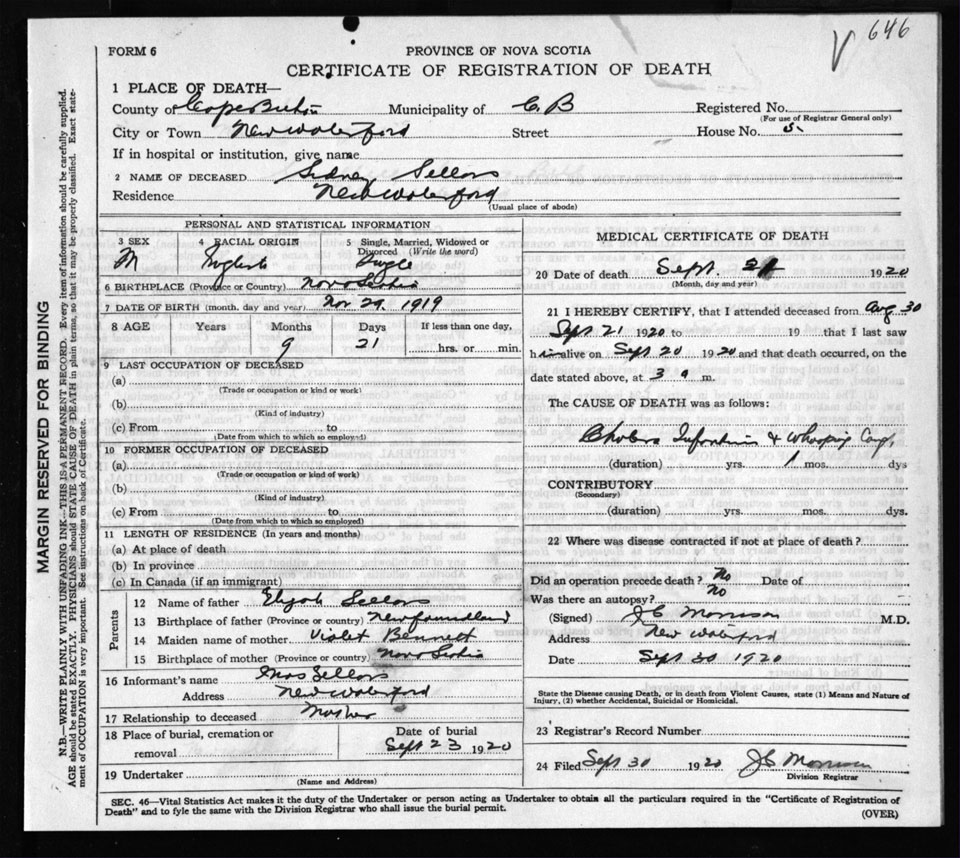 646
FORM 6
PROVINCE OF NOVA SCOTIA
CERTIFICATE OF REGISTRATION OF DEATH
1 PLACE OF DEATH—
County of Cape Breton Municipality of C. B Registered No.
(For use of Registrar General only)
City or Town New Waterford Street House No. 5.
If in hospital or institution, give name
2 NAME OF DECEASED Sidney Sellors
Residence New Waterford
(Usual place of abode)
PERSONAL AND STATISTICAL INFORMATION
3 SEX 4 RACIAL ORIGIN 5 Single, Married, Widowed or
Divorced (Write the word)
M English Single
6 BIRTHPLACE (Province or Country) Nova Scotia
7 DATE OF BIRTH (month, day and year) Nov 29, 1919
8 AGE Years Months Days If less than one day,
9 21 hrs. or min.
9 LAST OCCUPATION OF DECEASED
(a)
(Trade or occupation or kind or work)
(b)
(Kind of industry)
(c) From to
(Date from which to which so employed)
10 FORMER OCCUPATION OF DECEASED
(a)
(Trade or occupation or kind of work)
(b)
(Kind of industry)
(c) From to
(Date from which to which so employed)
11 LENGTH OF RESIDENCE (In years and months)
(a) At place of death
(b) In province
(c) In Canada (if an immigrant)
Parents
12 Name of father Elijah Sellors
13 Birthplace of father (Province or country) Newfoundland
14 Maiden name of mother Violet Bennett
15 Birthplace of mother (Province or country) Nova Scotia
16 Informant's name Sellors
Address New Waterford
17 Relationship to deceased Mother
18 Place of burial, cremation or Date of burial
removal Sept 23 1920
19 Undertaker
(Name and Address)
MEDICAL CERTIFICATE OF DEATH
20 Date of death Sept. 21 1920
(Month, day and year)
21 I HEREBY CERTIFY, that I attended deceased from Aug 30
Sept 21 1920 to 19 that I last saw
him alive on Sept 20 1920 and that death occurred, on the
date stated above, at 3 a m.
The CAUSE OF DEATH was as follows:
Cholera Infantum & Whooping Cough
(duration) yrs. 1 mos. dys
CONTRIBUTORY
(Secondary)
(duration) yrs. mos. dys.
22 Where was disease contracted if not at place of death?
Did an operation precede death? No Date of
Was there an autopsy? No
(Signed) J C Morrison M.D.
Address New Waterford
Date Sept 30 1920
State the Disease causing Death, or in death from Violent Causes, state (1) Means and Nature of
Injury, (2) whether Accidental, Suicidal or Homicidal.
23 Registrar's Record Number
24 Filed Sept 30 1920 J C Morrison
Division Registrar
SEC. 46—Vital Statistics Act makes it the duty of the Undertaker or person acting as Undertaker to obtain all the particulars required in the "Certificate of Registration of
Death" and to fyle the same with the Division Registrar who shall issue the burial permit.
(OVER)
MARGIN RESERVED FOR BINDING
N.B.—WRITE PLAINLY WITH UNFADING INK—THIS IS A PERMANENT RECORD. Every item of information should be carefully supplied.
AGE should be stated EXACTLY. PHYSICIANS should STATE CAUSE OF DEATH in plain terms, so that it may be properly classified. Exact state-
ment of OCCUPATION is very important. See instructions on back of Certificate.